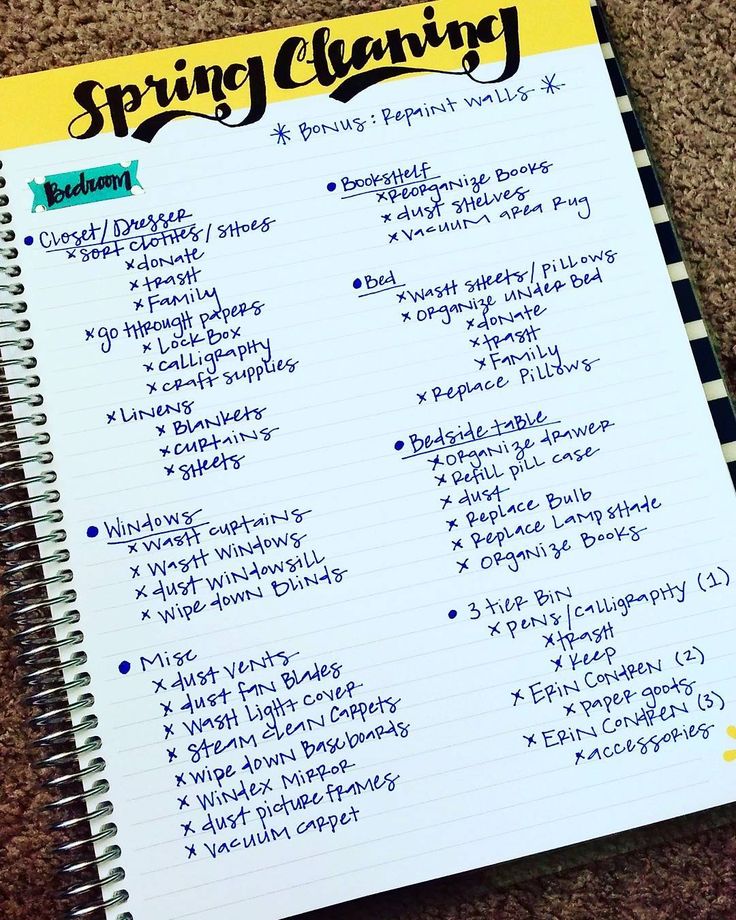 Spring Cleaning
* Bonus: Repaint Walls *
Bedroom
• Closet/Dresser
x Sort clothes/shoes
x donate
x trash
x Family
x go through papers
x Lock Box
x calligraphy
x craft supplies
x Linens
x Blankets
x curtains
x sheets
• Windows
x Wash curtains
x Wash windows
x dust windowsill
x wipe down Blinds
• Misc
x dust vents
x dust fan Blades
x Wash Light cover
x Steam clean carpets
x wipe down Baseboards
x Windex Mirror
x dust picture frames
x vacuum carpet
• Bookshelf
x Reorganize Books
x dust shelves
x vacuum area Rug
• Bed
x Wash sheets/pillows
x organize under Bed
x donate
x trash
x Family
x Replace Pillows
• Bedside table
x organize drawer
x Refill pill case
x dust
x Replace Bulb
x Replace Lampshade
x organize Books
• 3 tier Bin
x pens/calligraphy (1)
x trash
x keep
x Erin Condren (2)
x paper goods
x Erin Condren (3)
x accessories